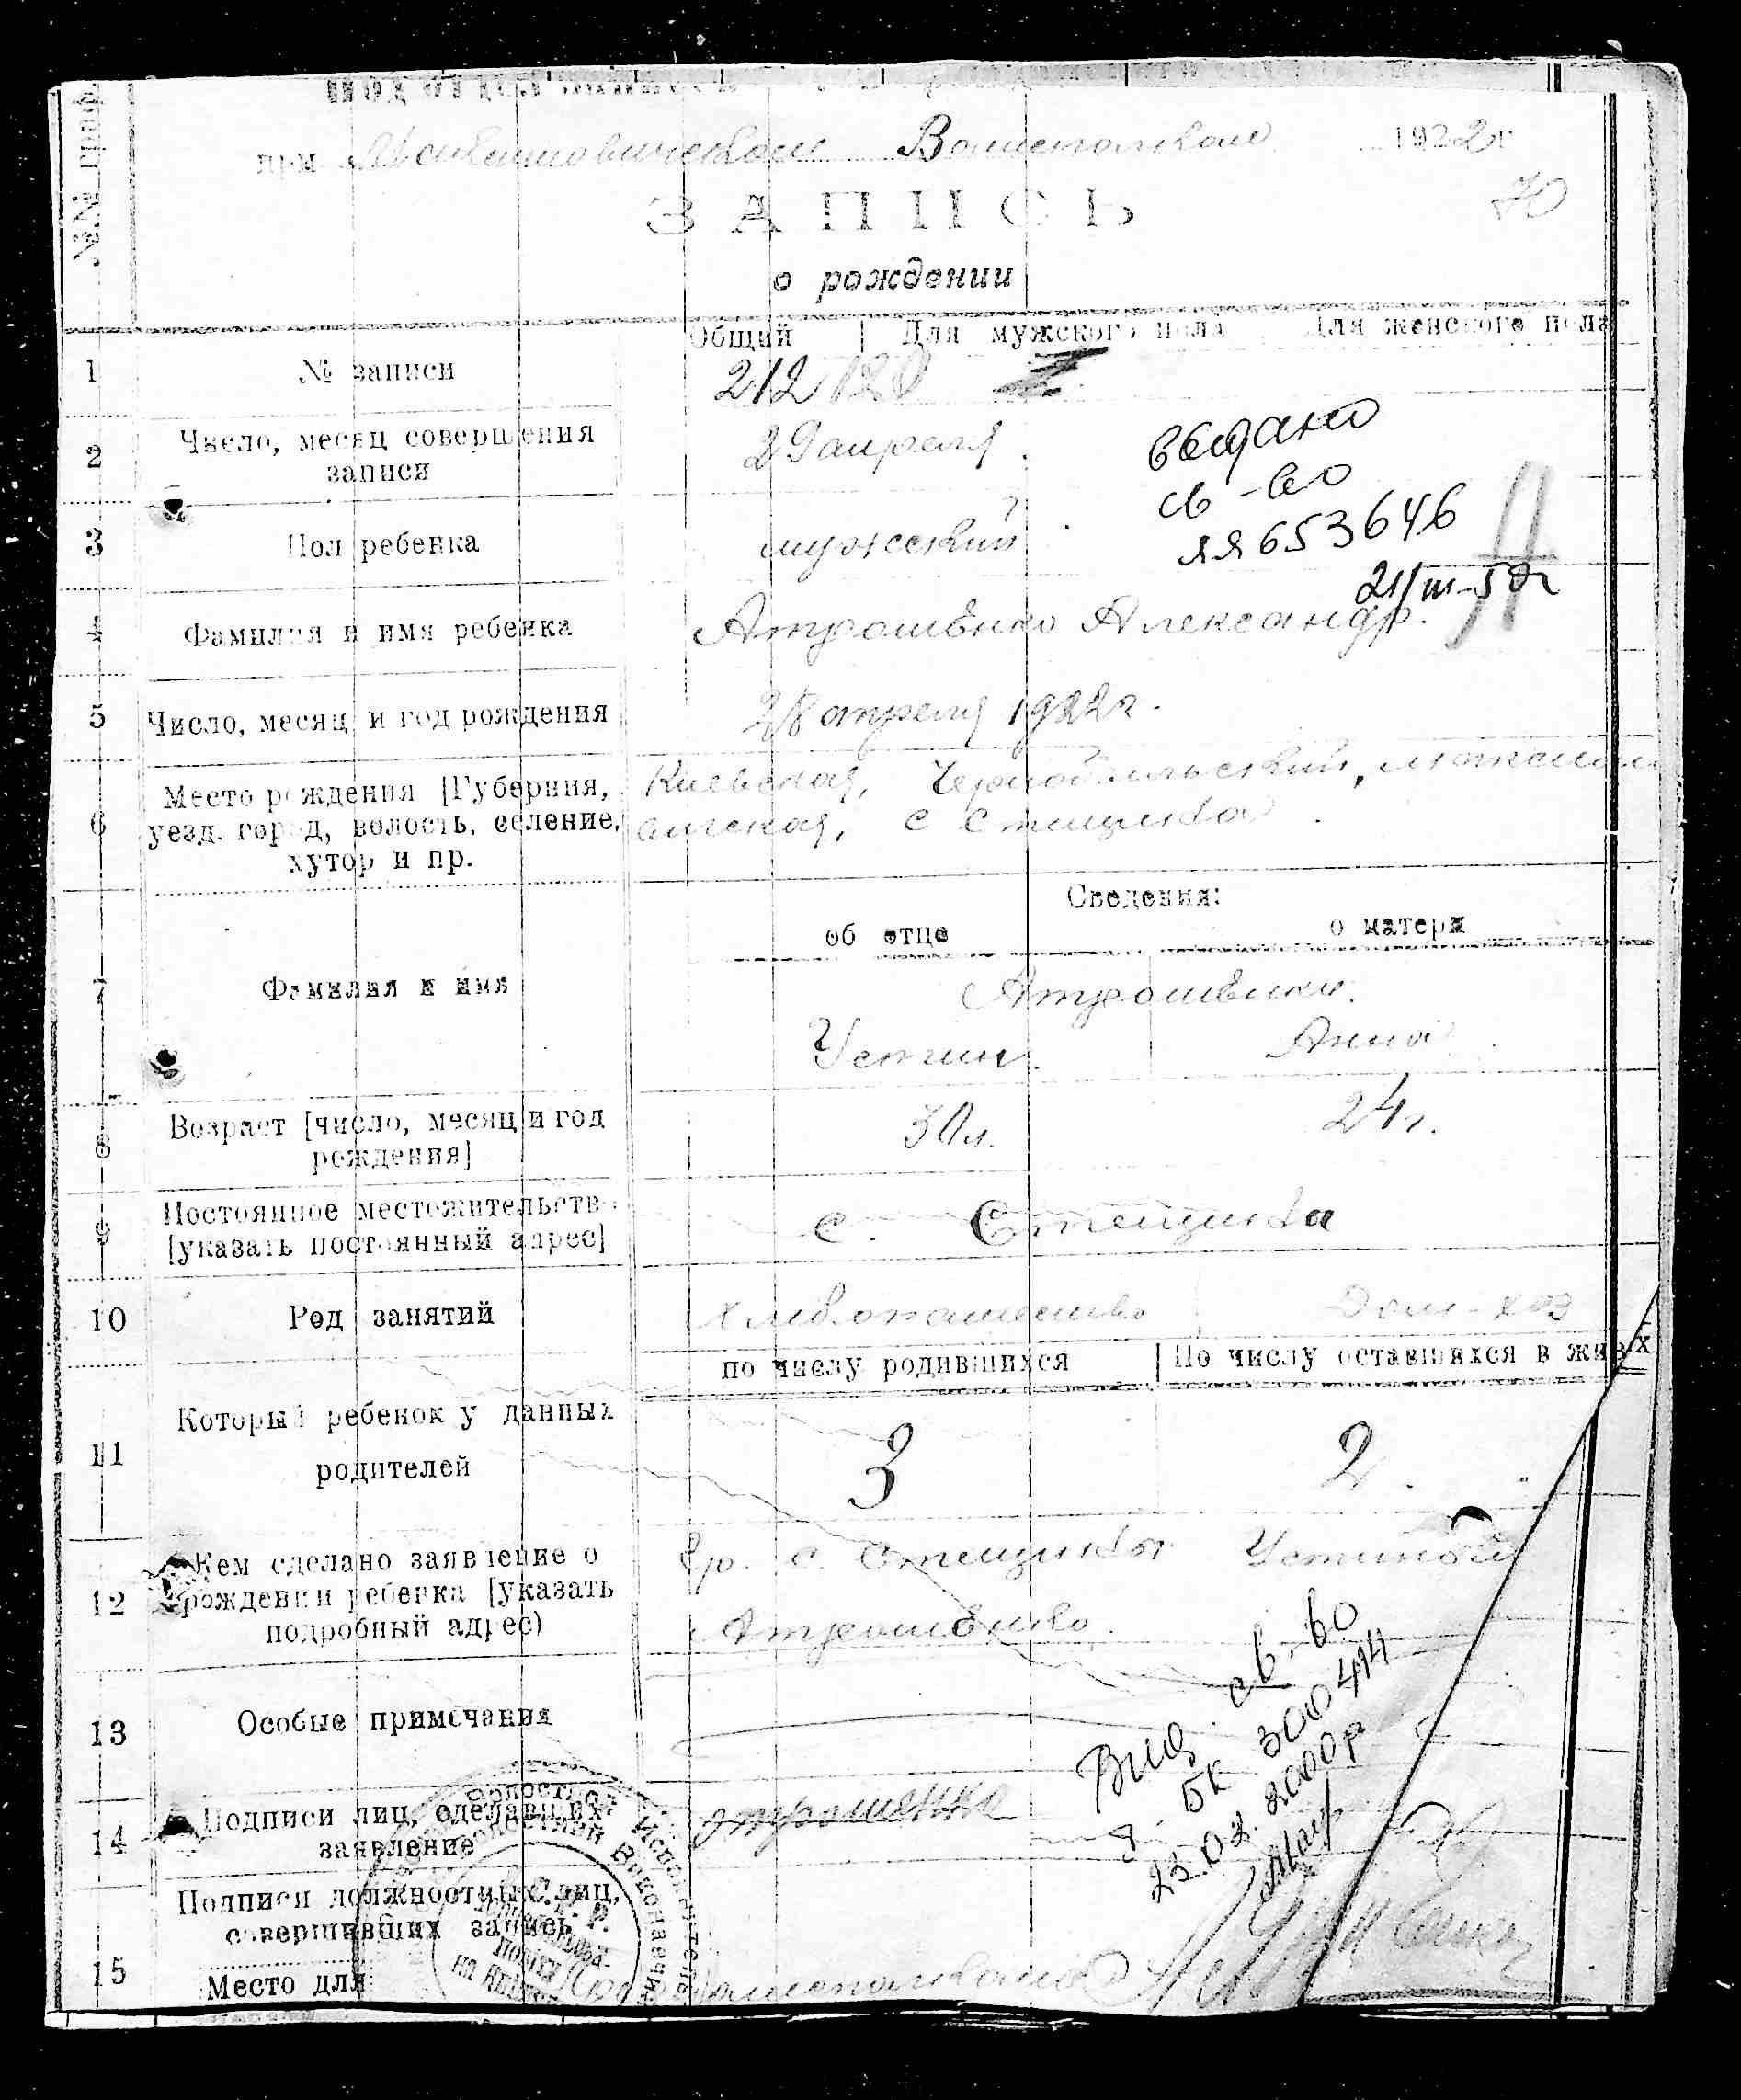 №№ граф
при Волисполкоме 1922 г
70
ЗАПИСЬ
о рождении
Общий Для мужского пола Для женского пола
1 № записи 212 120
2 Число, месяц совершения записи 29 апреля
выдано
св-во
яя 653646
21/III-5
3 Пол ребенка мужеский
4 Фамилия и имя ребенка Атрошѣнко Александр.
5 Число, месяц и год рождения 28 апреля 1922 г.
6 Место рождения [Губерния, Киевская, Чернобыльский,
уезд. город, волость, селение, с Стещинка
хутор и пр.
Сведения:
об отце о матери
7 Фамилия и имя Атрошѣнки.
Устин. Анна
8 Возраст [число, месяц и год рождения] 30 л. 24 г.
9 Постоянное местожительство [указать постоянный адрес] с. Стещинка
10 Род занятий хлебопашество Дом-хоз
по числу родившихся По числу оставшихся в живых
11 Который ребенок у данных родителей 3 2
12 Кем сделано заявление о гр. с. Стещинка Устином
рождении ребенка [указать Атрошѣнко.
подробный адрес)
13 Особые примечания
Вид. св-во
БК 300414
23.02.2000р
14 Подписи лиц, сделавших заявление атрошенка
15 Подписи должностных лиц, совершивших запись
Место для